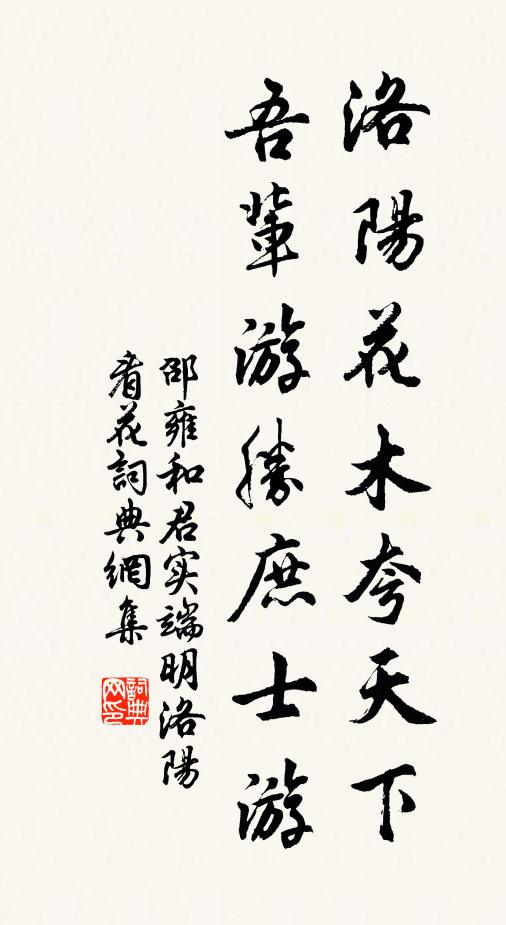 洛陽花木夸天下
吾輩游勝庶士游
邵雍和君实端明洛陽
看花詞典網集
詞典网印